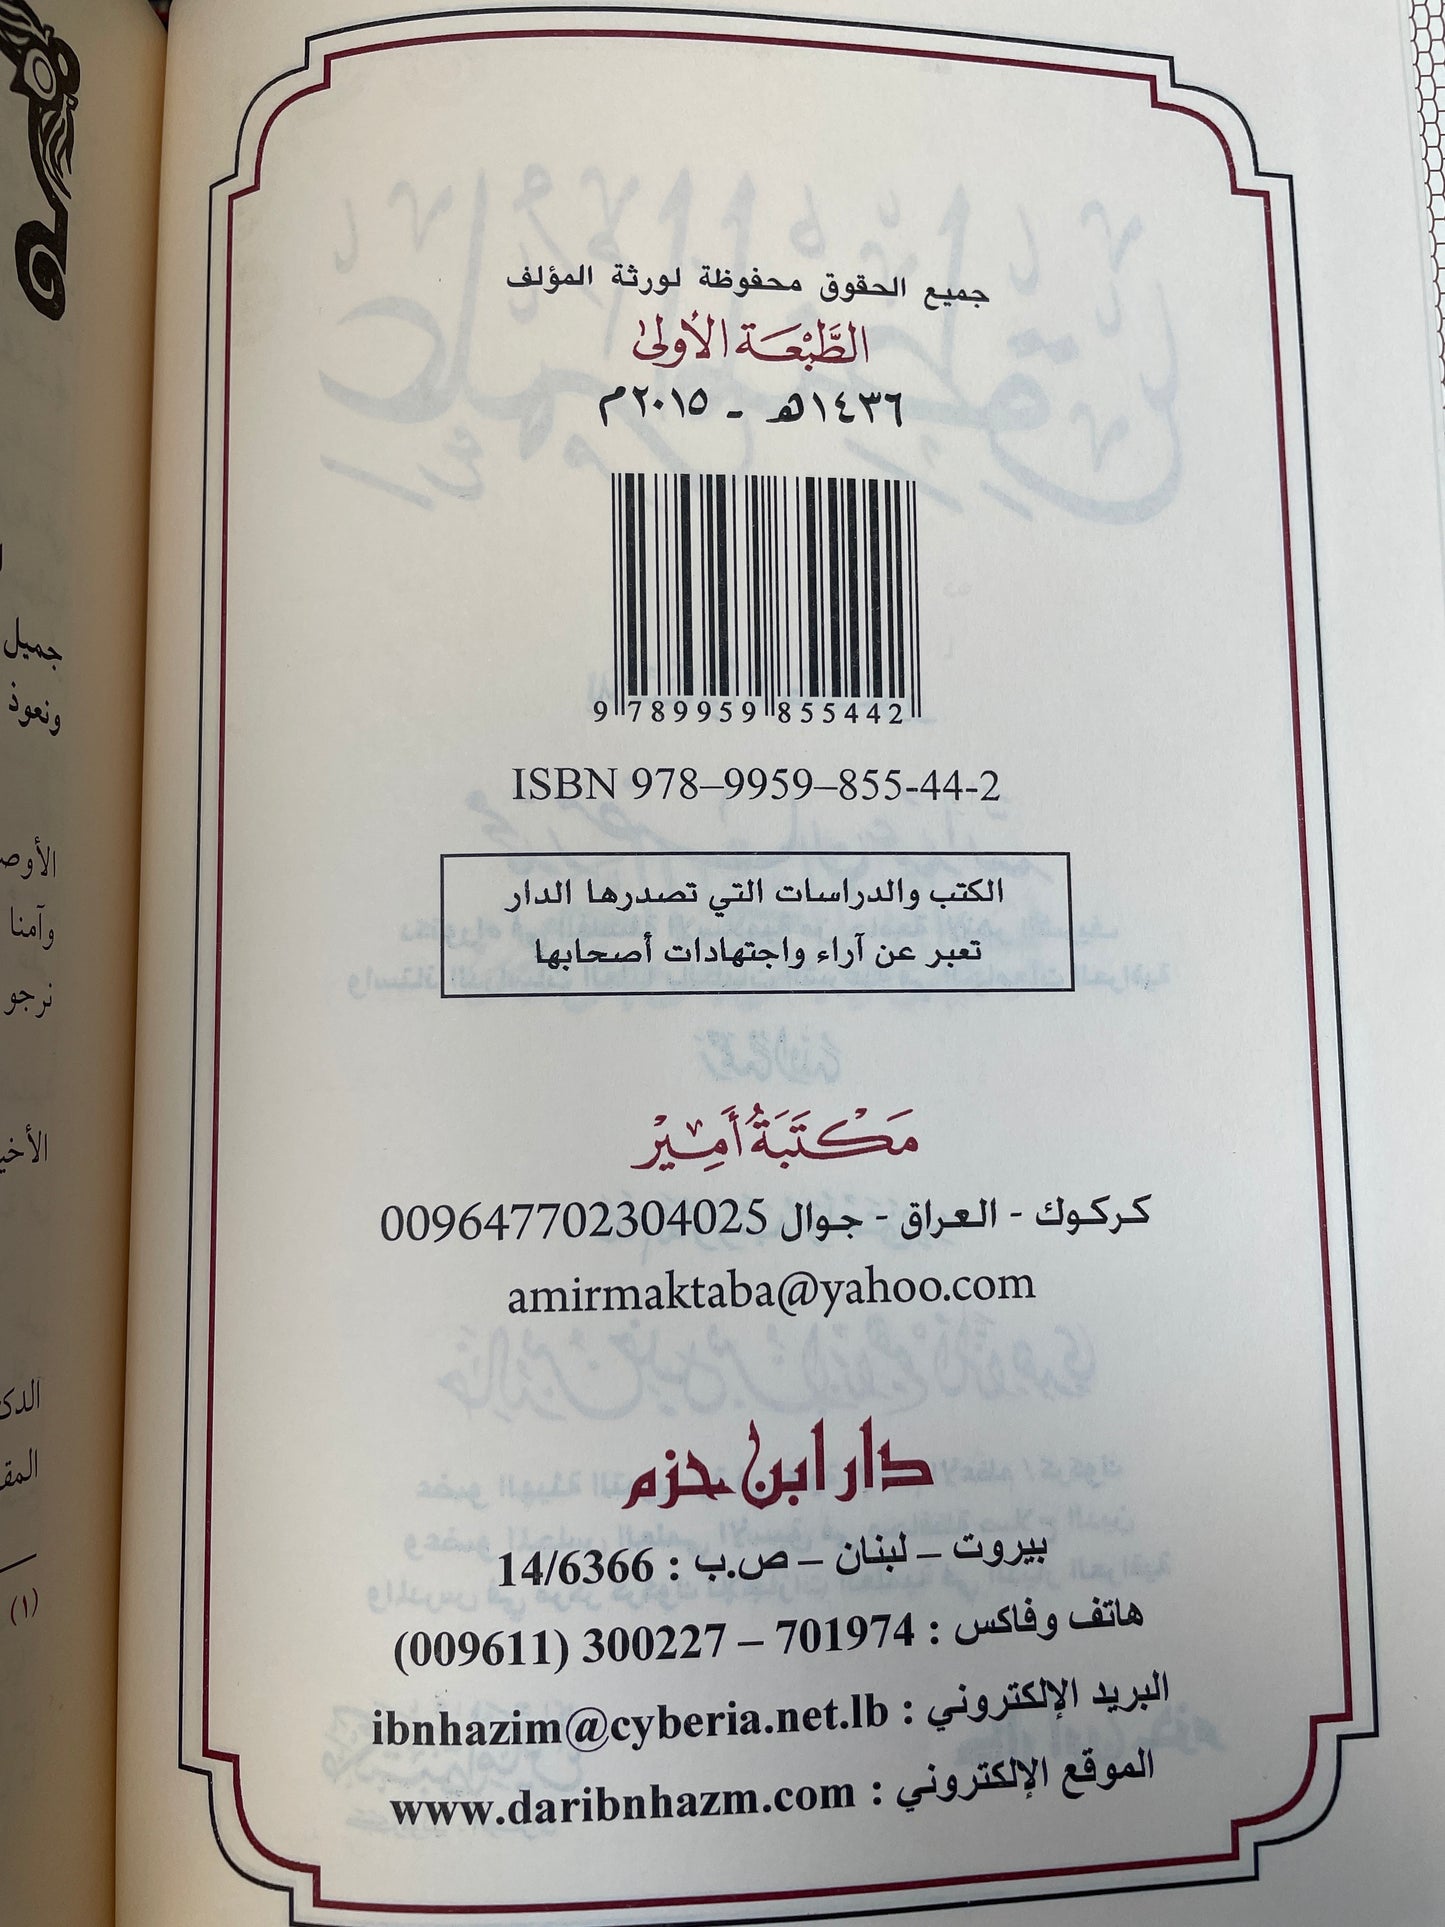 جميع الحقوق محفوظة لورثة المؤلف
الطَّبْعَة الأولى
١٤٣٦هـ - ٢٠١٥م
9 789959 855442
ISBN 978–9959–855-44-2
الكتب والدراسات التي تصدرها الدار
تعبر عن آراء واجتهادات أصحابها
مَكْتَبَةُ أَمِيْر
كركوك - العراق - جوال 009647702304025
amirmaktaba@yahoo.com
دار ابن حزم
بيروت – لبنان – ص.ب : 14/6366
هاتف وفاكس : 701974 – 300227 (009611)
البريد الإلكتروني : ibnhazim@cyberia.net.lb
الموقع الإلكتروني : www.daribnhazm.com
جميل
ونعوذ
وآمنا
نرجو
(١)